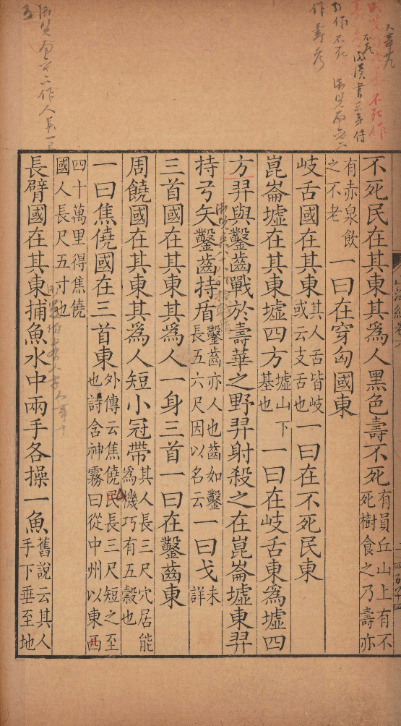 不死民在其東其爲人黑色壽不死有員丘山上有不死樹食之乃壽亦
有赤泉飲之不老一曰在穿匈國東
岐舌國在其東其人舌皆岐或云支舌也一曰在不死民東
崑崙墟在其東墟四方墟山下基也一曰在岐舌東爲墟四
方羿與鑿齒戰於壽華之野羿射殺之在崑崙墟東羿
持弓矢鑿齒持盾鑿齒亦人也齒如鑿長五六尺因以名云一曰戈未詳
三首國在其東其爲人一身三首一曰在鑿齒東
周饒國在其東其爲人短小冠帶其人長三尺穴居能爲機巧有五穀也
一曰焦僥國在三首東外傳云焦僥民長三尺短之至也詩含神霧曰從中州以東西
四十萬里得焦僥國人長尺五寸也
長臂國在其東捕魚水中兩手各操一魚舊說云其人手下垂至地